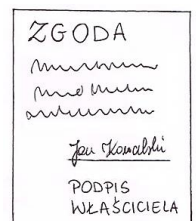 ZGODA
Jan Kowalski
PODPIS
WŁAŚCICIELA